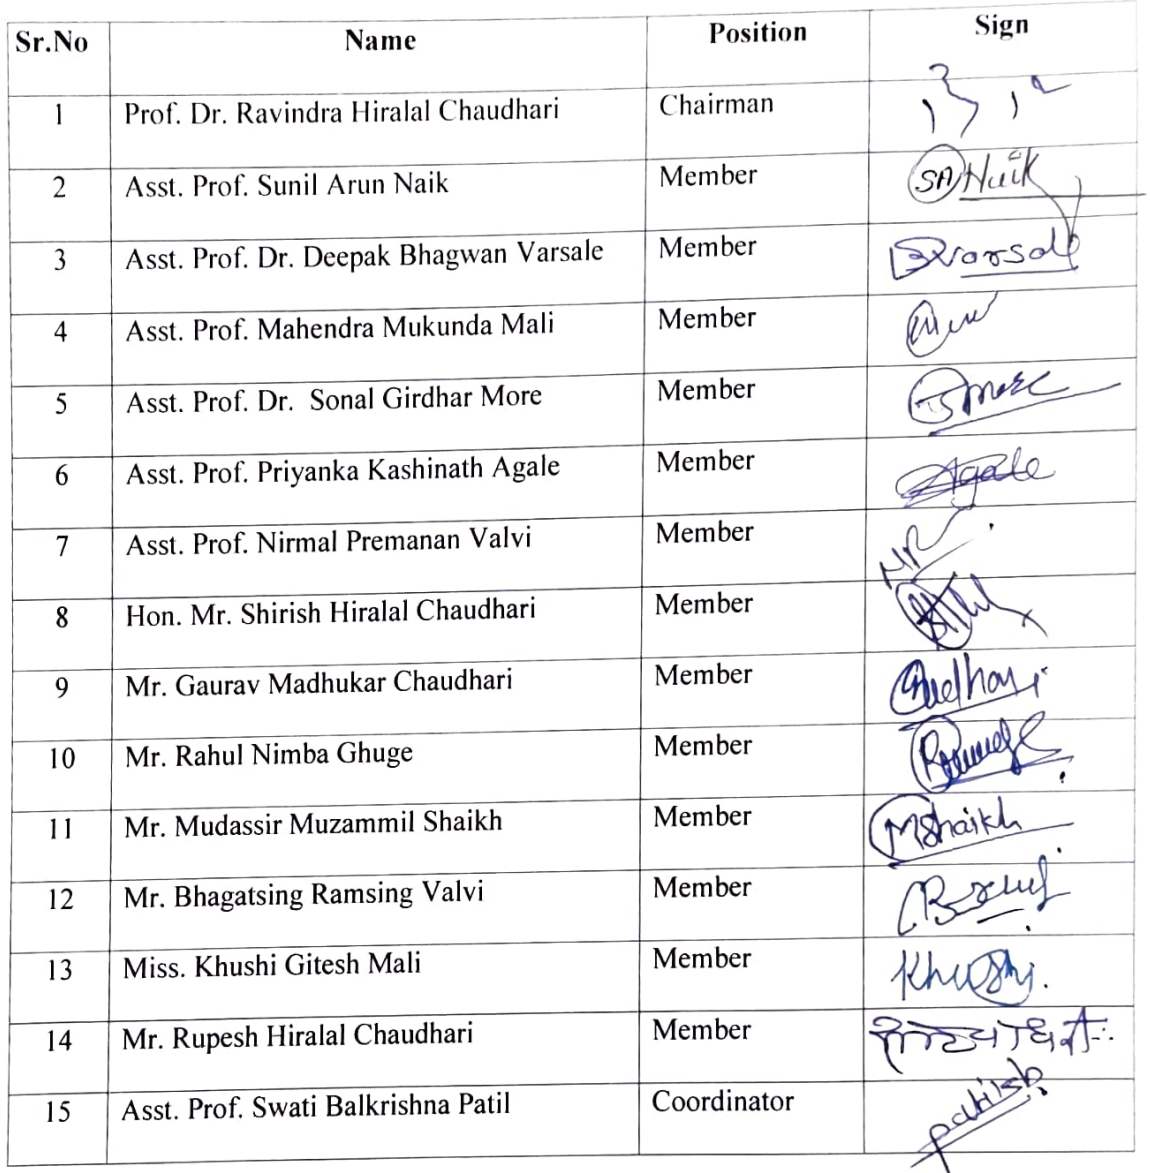 Sr.No Name Position Sign
1 Prof. Dr. Ravindra Hiralal Chaudhari Chairman
2 Asst. Prof. Sunil Arun Naik Member SANaik
3 Asst. Prof. Dr. Deepak Bhagwan Varsale Member BVarsale
4 Asst. Prof. Mahendra Mukunda Mali Member
5 Asst. Prof. Dr. Sonal Girdhar More Member Smore
6 Asst. Prof. Priyanka Kashinath Agale Member Agale
7 Asst. Prof. Nirmal Premanan Valvi Member
8 Hon. Mr. Shirish Hiralal Chaudhari Member
9 Mr. Gaurav Madhukar Chaudhari Member
10 Mr. Rahul Nimba Ghuge Member
11 Mr. Mudassir Muzammil Shaikh Member MShaikh
12 Mr. Bhagatsing Ramsing Valvi Member
13 Miss. Khushi Gitesh Mali Member Khushi.
14 Mr. Rupesh Hiralal Chaudhari Member
15 Asst. Prof. Swati Balkrishna Patil Coordinator patilsb